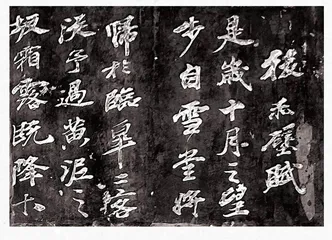 後赤壁賦
是歲十月之望
步自雪堂將
歸於臨皋二客
從予過黃泥之
坂霜露既降木